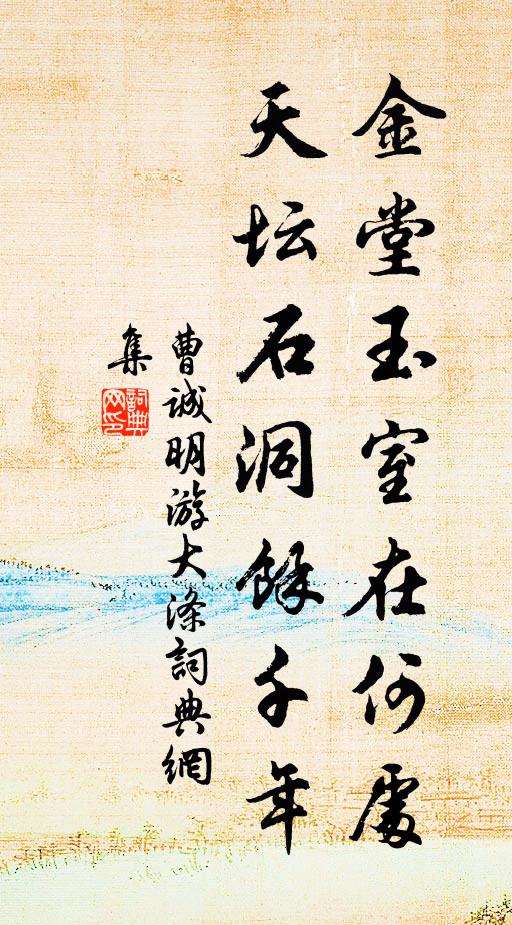 金堂玉室在何處
天坛石洞餘千年
曹誠明游大滌詞典網
集
詞典
网印